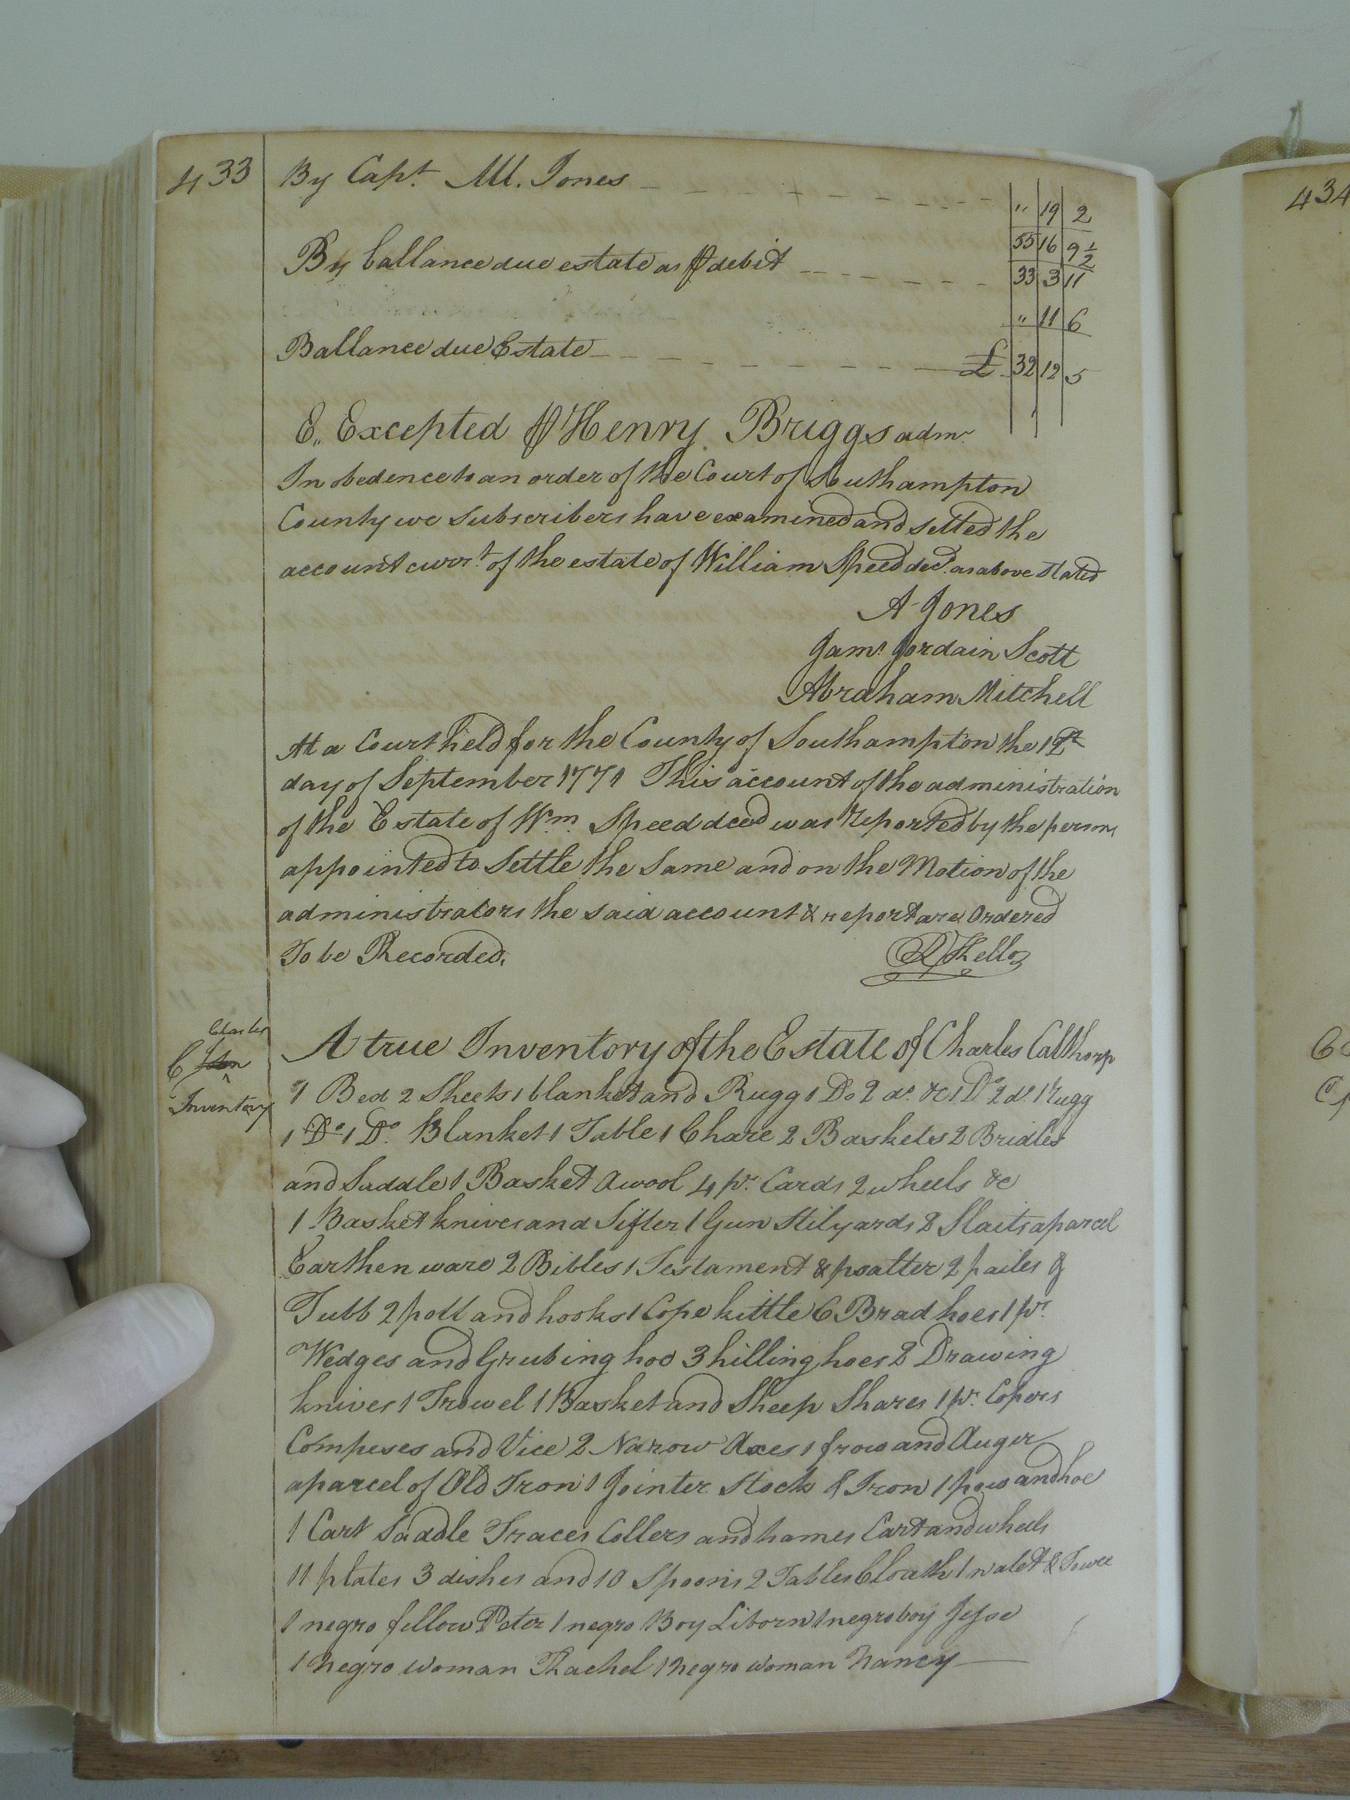 433
By Capt. M. Jones
" 19 2
55 16 9 1/2
By ballance due estate as ℔ debit
33 3 11
" 11 6
Ballance due Estate £ 32 12 5
E,, Excepted ℔ Henry Briggs admr
In obedence to an order of the Court of Southampton
County we Subscribers have examined and setled the
account currt. of the estate of William Speed decd. as above stated
A Jones
Jams Jordain Scott
Abraham Mitchell
At a Court held for the County of Southampton the 12th
day of September 1771 This account of the administration
of the Estate of Wm. Speed decd was reported by the persons
appointed to Settle the Same and on the Motion of the
administrators the said account & report are Ordered
To be Recorded.
R Kello
Charles
C
Inventory
A true Inventory of the Estate of Charles Calthorp
1 Bed 2 Sheets 1 blanket and Rugg 1 Do 2 do. &c 1 Do 2 do. 1 Rugg
1 Do 1 Do. Blanket 1 Table 1 Chare 2 Baskets 2 Bridles
and Saddle 1 Basket A wool 4 pr. Cards 2 wheels &c
1 Basket knives and Sifter 1 Gun Stilyards 2 Slaits a parcel
Earthen ware 2 Bibles 1 Testament & psalter 2 pailes &
Tubb 2 pott and hooks 1 Cope kittle 6 Brad hoes 1 pr.
Wedges and Grubing hoo 3 hilling hoes 2 Drawing
knives 1 Trowel 1 Basket and Sheep Shares 1 pr. Copers
Compeses and Vice 2 Narow Axes 1 frow and Auger
a parcel of Old Iron 1 Jointer Stock & Iron 1 plow and hoe
1 Cart Saddle Traces Collers and hames Cart and wheels
11 plates 3 dishes and 10 Spoons 2 Tables Cloath 1 walet &
1 negro fellow Peter 1 negro Boy Liborn 1 negro boy Jesse
1 Negro woman Rachel 1 Negro woman Nancy
434